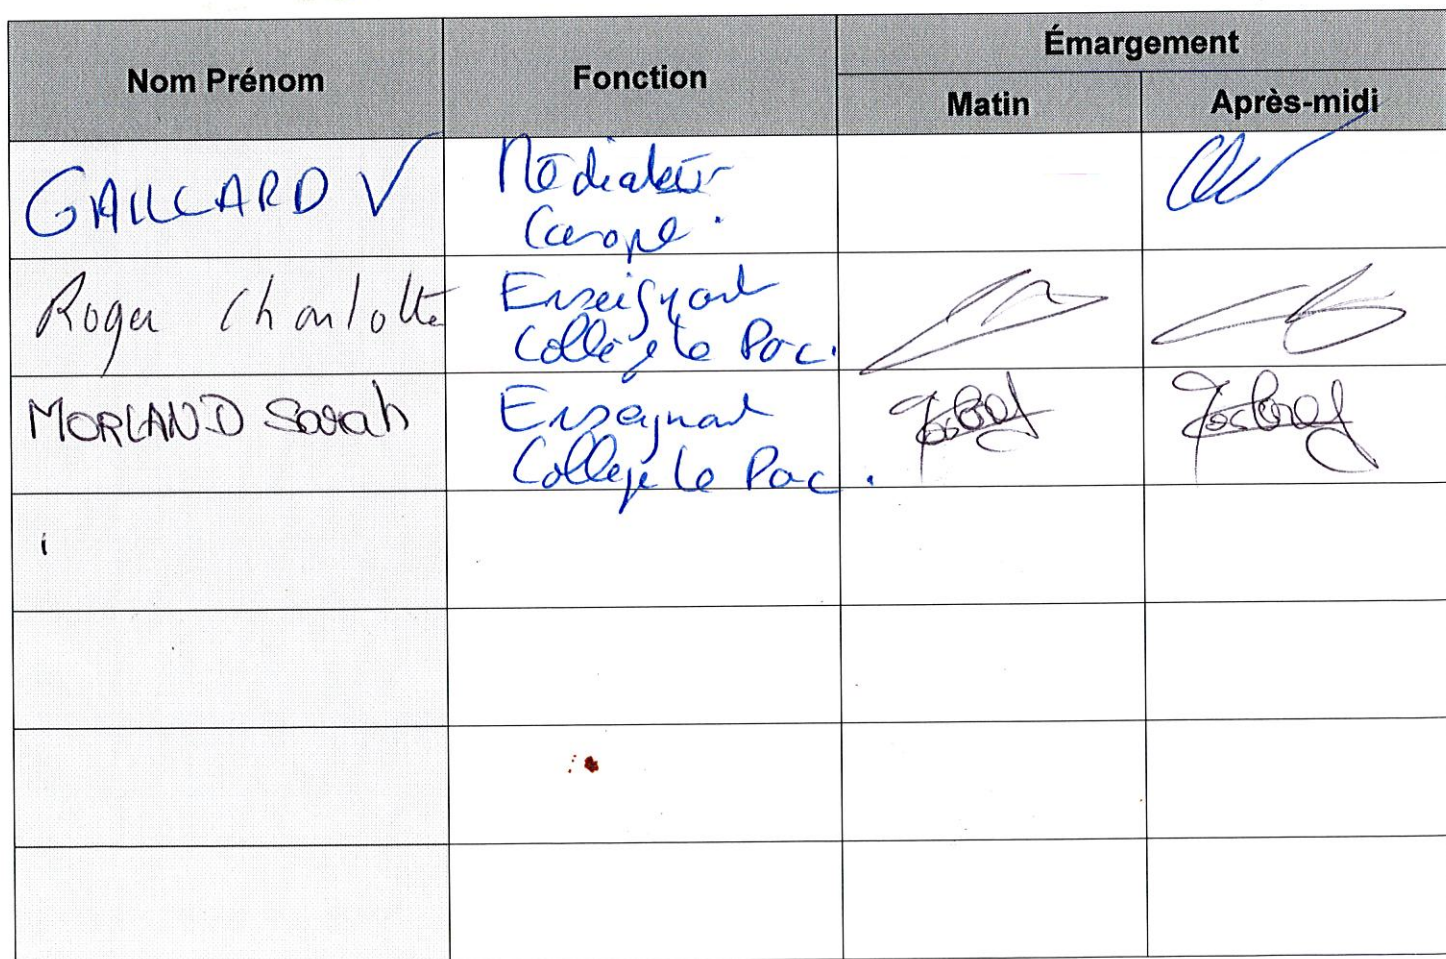 Nom Prénom
Fonction
Émargement
Matin
Après-midi
GAILLARD V
Médiateur
Canopé.
Roger Charlotte
Enseignant
Collège le Parc.
MORLAND Sarah
Enseignant
Collège le Parc.